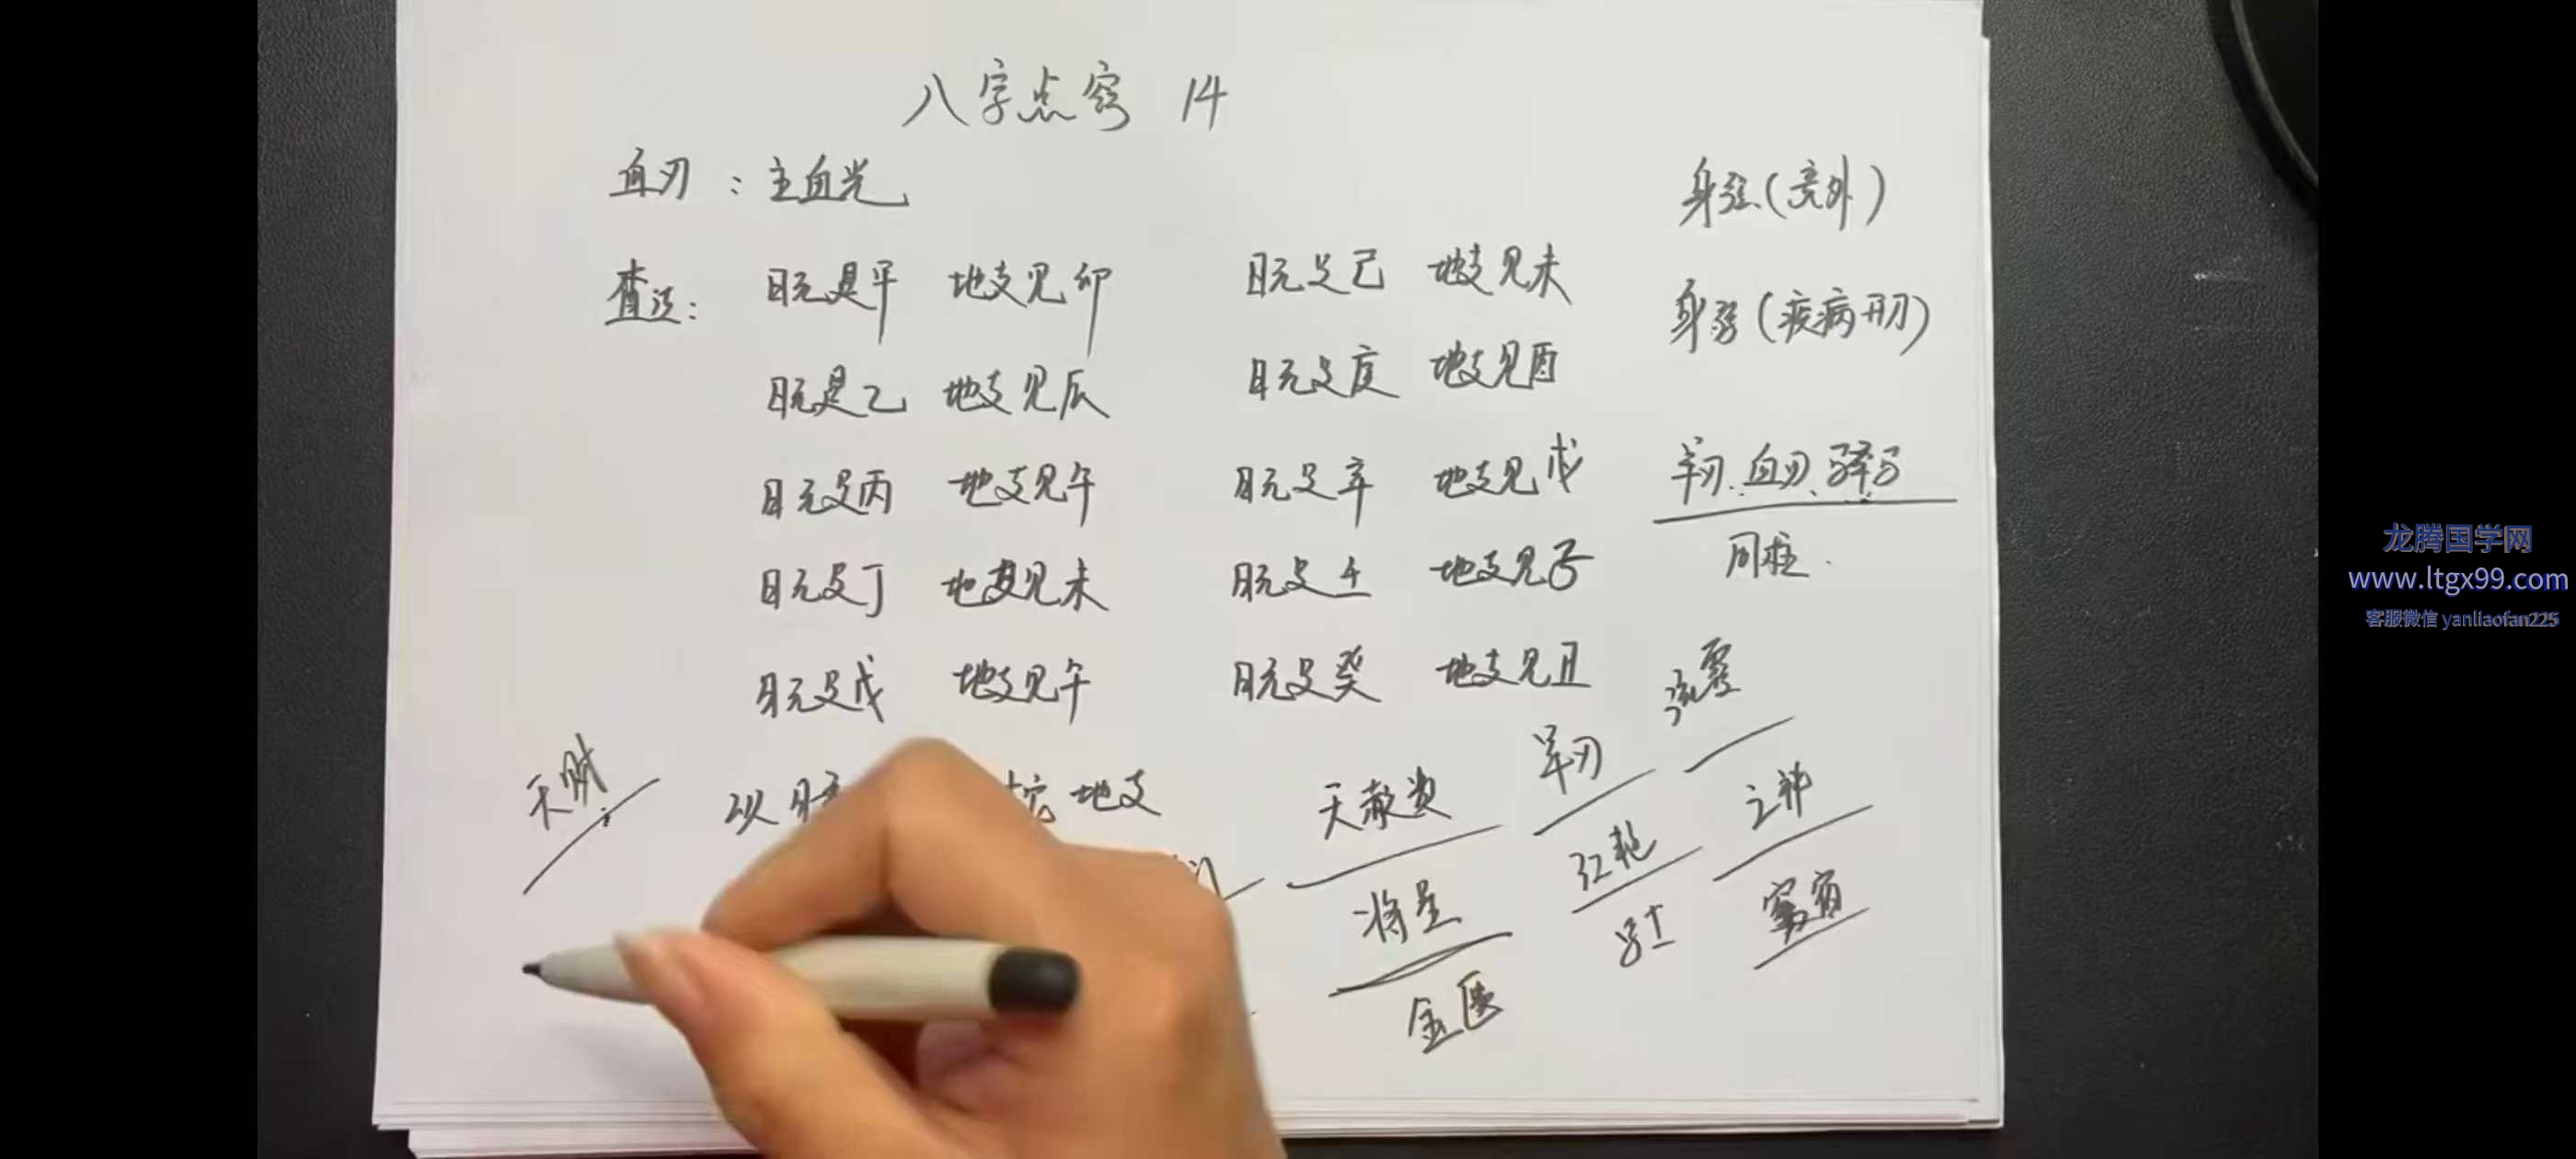 八字点窍 14
血刃：主血光
身强(意外)
查法：日元是甲 地支见卯 日元是己 地支见未
身弱(疾病开刀)
日元是乙 地支见辰 日元是庚 地支见酉
日元是丙 地支见午 日元是辛 地支见戌
羊刃、血刃、驿马
日元是丁 地支见未 日元是壬 地支见子
同柱.
日元是戊 地支见午 日元是癸 地支见丑
天财
以日 地支
天赦贵
将星
金匮
羊刃
红艳
流霞
之神
寡宿
龙腾国学网
www.ltgx99.com
客服微信 yanliaofan225